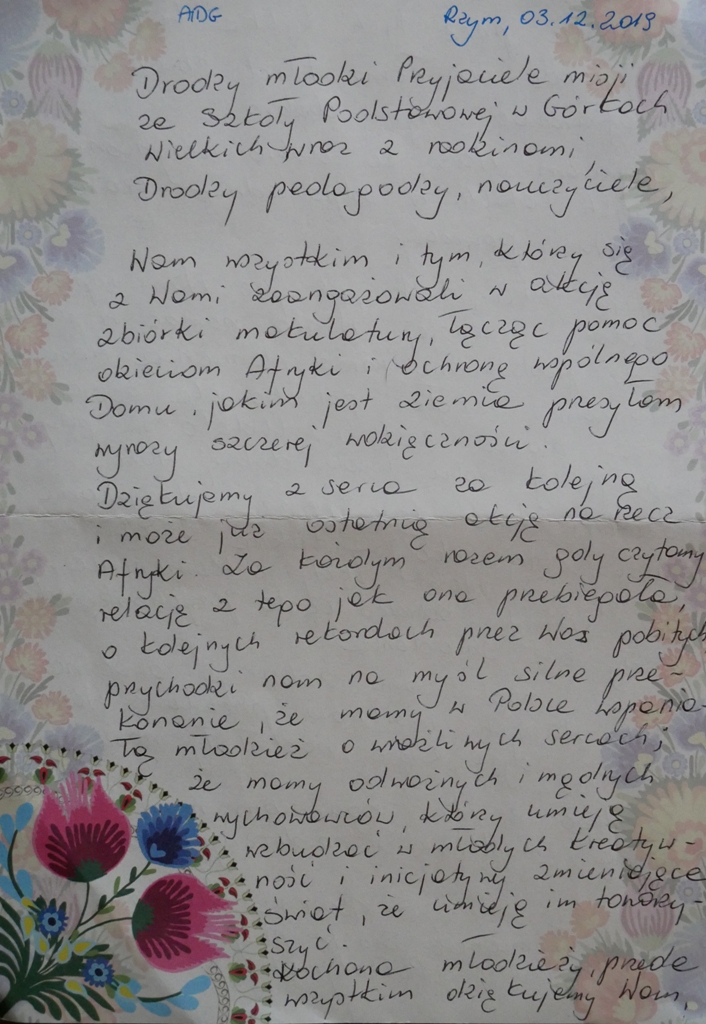 ADG
Rzym, 03.12.2019
Drodzy młodzi Przyjaciele misji
ze Szkoły Podstawowej w Górkach
Wielkich wraz z rodzinami,
Drodzy pedagodzy, nauczyciele,
Wam wszystkim i tym, którzy się
z Wami zaangażowali w akcję
zbiórki makulatury, łącząc pomoc
dzieciom Afryki i ochronę wspólnego
Domu, jakim jest Ziemia przesyłam
wyrazy szczerej wdzięczności.
Dziękujemy z serca za kolejną
i może już ostatnią akcję na rzecz
Afryki. Za każdym razem gdy czytamy
relację z tego jak ona przebiegała,
o kolejnych rekordach przez Was pobitych
przychodzi nam na myśl silne prze-
konanie, że mamy w Polsce wspania-
łą młodzież o wrażliwych sercach;
że mamy odważnych i mądrych
wychowawców, którzy umieją
wzbudzać w młodych kreatyw-
ność i inicjatywy zmieniające
świat, że umieją im towarzy-
szyć.
Kochana młodzieży, przede
wszystkim dziękujemy Wam,